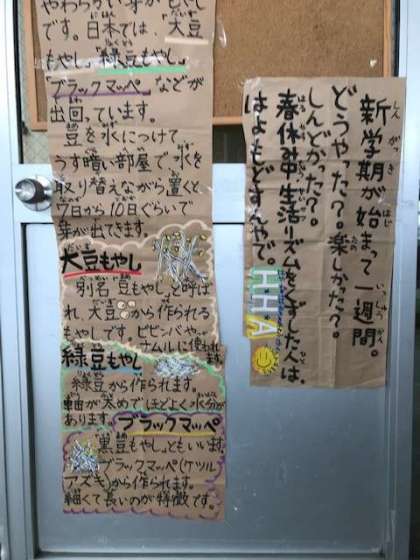 やわらかい芽がもやし
です。日本では「大豆
もやし」「緑豆もやし」
「ブラックマッペ」などが
出回っています。
豆を水につけて
うす暗い部屋で水を
取り替えながら置くと、
7日から10日ぐらいで
芽が出てきます。
大豆もやし
別名「豆もやし」と呼ば
れ、大豆から作られる
もやしです。ビビンバや
ナムルに使われます。
緑豆もやし
緑豆から作られます。
軸が太めでほどよく水分が
あります。
ブラックマッペ
「黒豆もやし」ともいいます。
ブラックマッペ(ケツル
アズキ)から作られます。
細くて長いのが特徴です。
新学期が始まって一週間。
どうやった?楽しかった?
しんどかった?
春休み中生活リズムをくずした人は、
はよもどすんやで。
H.H.A